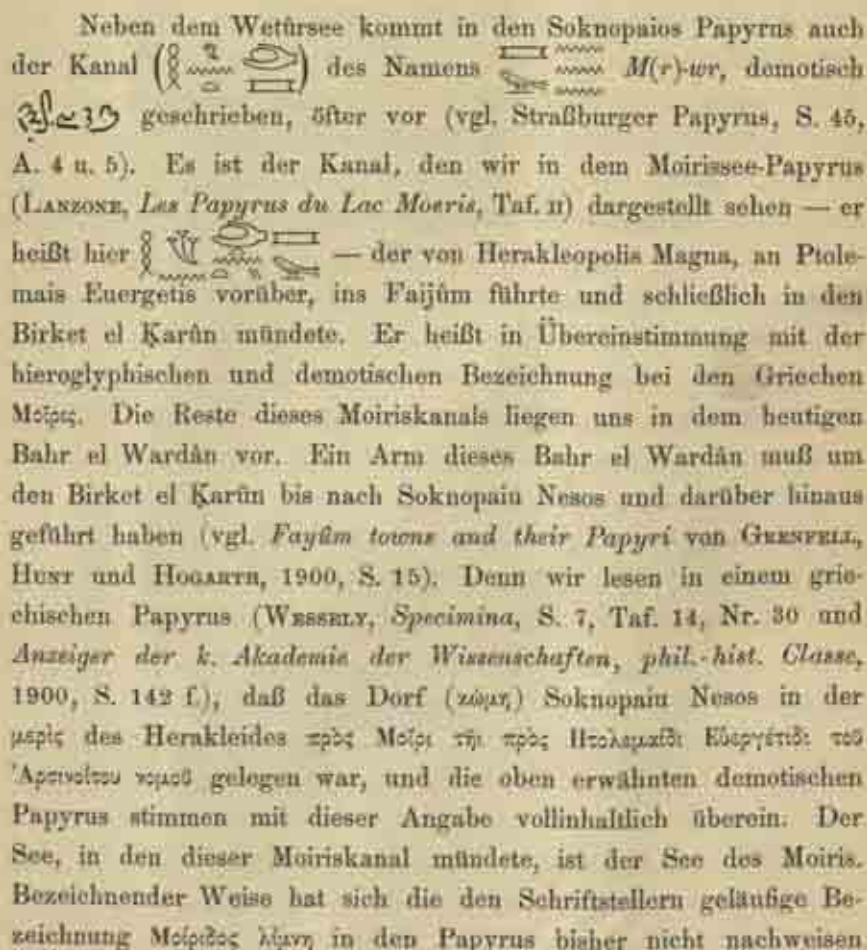 Neben dem Wetûrsee kommt in den Soknopaios Papyrus auch
der Kanal ( ) des Namens M(r)-wr, demotisch
geschrieben, öfter vor (vgl. Straßburger Papyrus, S. 45,
A. 4 u. 5). Es ist der Kanal, den wir in dem Moirissee-Papyrus
(LANZONE, Les Papyrus du Lac Moeris, Taf. II) dargestellt sehen — er
heißt hier — der von Herakleopolis Magna, an Ptole-
mais Euergetis vorüber, ins Faijûm führte und schließlich in den
Birket el Ḳarûn mündete. Er heißt in Übereinstimmung mit der
hieroglyphischen und demotischen Bezeichnung bei den Griechen
Μοῖρις. Die Reste dieses Moiriskanals liegen uns in dem heutigen
Bahr el Wardân vor. Ein Arm dieses Bahr el Wardân muß um
den Birket el Ḳarûn bis nach Soknopaiu Nesos und darüber hinaus
geführt haben (vgl. Fayûm towns and their Papyri von GRENFELL,
HUNT und HOGARTH, 1900, S. 15). Denn wir lesen in einem grie-
chischen Papyrus (WESSELY, Specimina, S. 7, Taf. 14, Nr. 30 und
Anzeiger der k. Akademie der Wissenschaften, phil.-hist. Classe,
1900, S. 142 f.), daß das Dorf (κώμη) Soknopaiu Nesos in der
μερὶς des Herakleides πρὸς Μοίρι τῆι πρὸς Πτολεμαΐδι Εὐεργέτιδι τοῦ
Ἀρσινοΐτου νομοῦ gelegen war, und die oben erwähnten demotischen
Papyrus stimmen mit dieser Angabe vollinhaltlich überein. Der
See, in den dieser Moiriskanal mündete, ist der See des Moiris.
Bezeichnender Weise hat sich die den Schriftstellern geläufige Be-
zeichnung Μοίριδος λίμνη in den Papyrus bisher nicht nachweisen